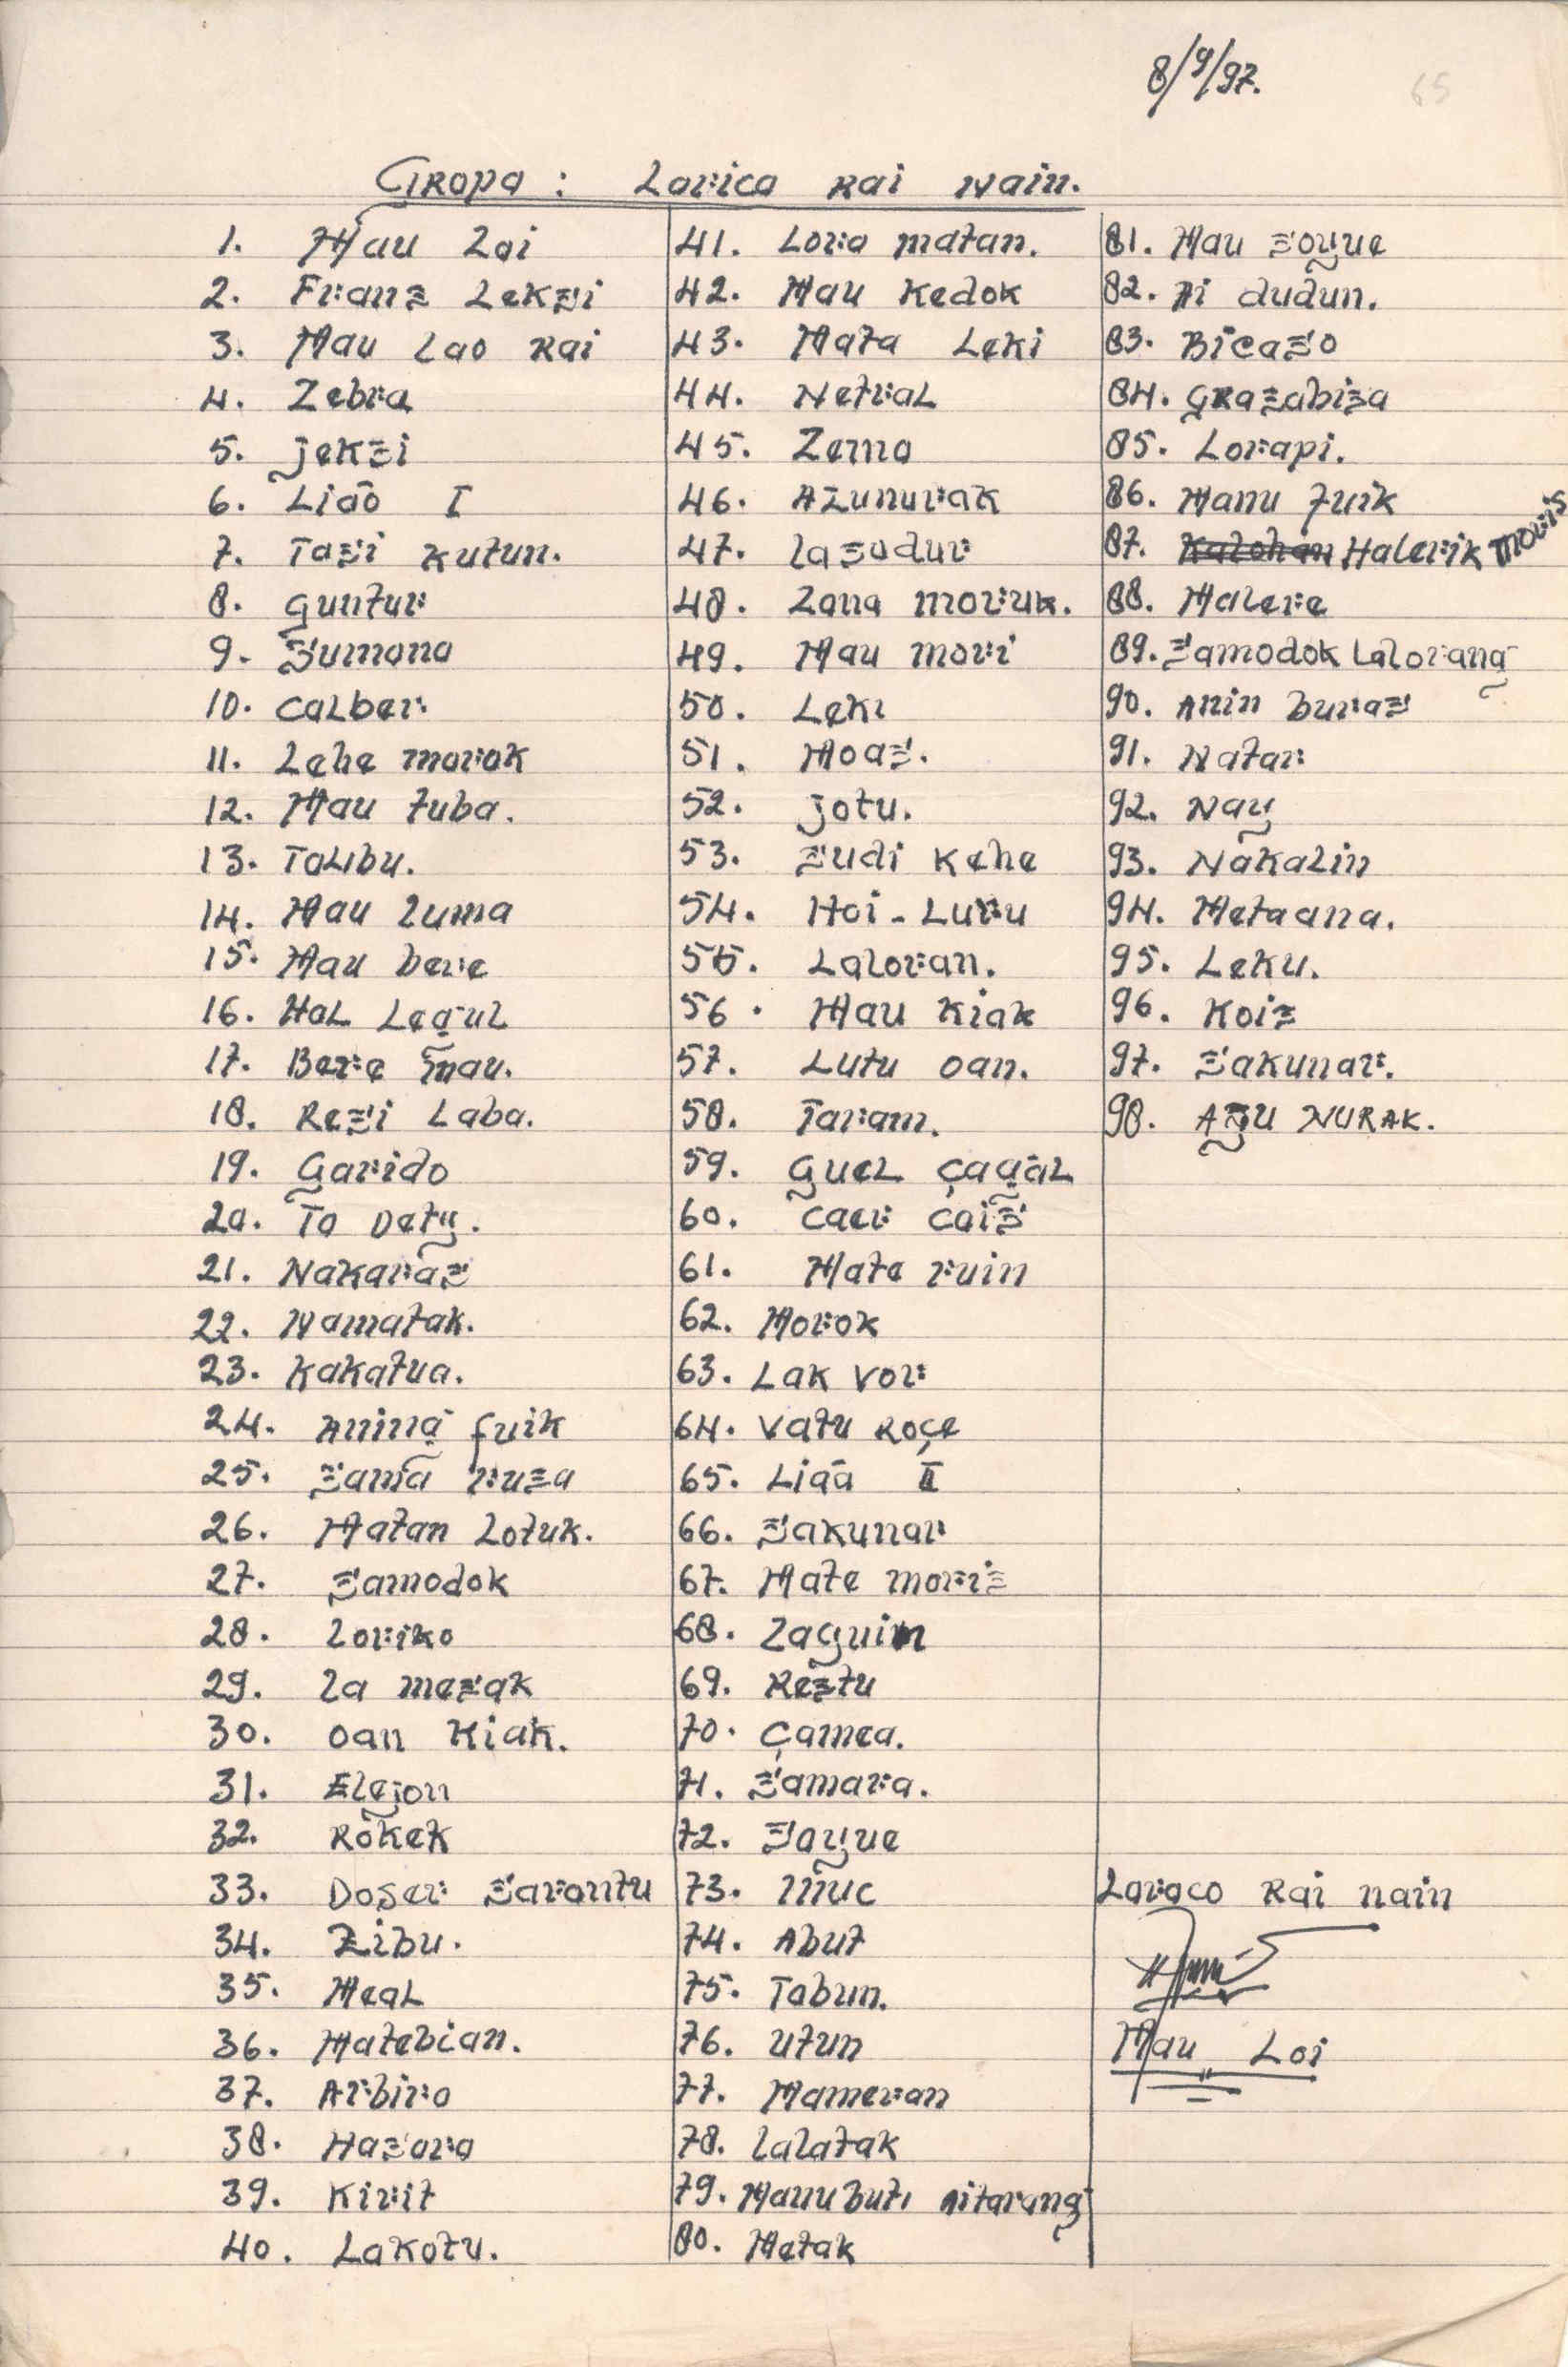 8/9/97.
65
Gropa : Lorico Rai Nain.
1. Mau Loi
2. Frans Leksi
3. Mau Lao Rai
4. Zebra
5. Jeksi
6. Lião I
7. Tasi kutun.
8. Guntur
9. Sumono
10. Calber
11. Lehe morok
12. Mau tuba.
13. Talibu.
14. Mau luma
15. Mau bere
16. Hal Legul
17. Bere Snau.
18. Resi Laba.
19. Garido
20. To Dety.
21. Nakaras
22. Namatak.
23. Kakatua.
24. Aning fuik
25. Santa rusa
26. Matan Lotuk.
27. Samodok
28. Loriko
29. La mesak
30. Oan Kiak.
31. Elejon
32. Rokek
33. Doser Sarontu
34. Zibu.
35. Meal
36. Matebian.
37. Arbiro
38. Hasoro
39. Kirit
40. Lakotu.
41. Loro matan.
42. Mau Kedok
43. Mata Leki
44. Netral
45. Zemo
46. Azunurak
47. Lasodur
48. Lona moruk.
49. Mau mori
50. Leki
51. Moas.
52. Jotu.
53. Sudi Kehe
54. Hoi-Luru
55. Laloran.
56. Mau Kiak
57. Lutu oan.
58. Taram.
59. Guel Çagal
60. Caer Cois
61. Mate ruin
62. Morok
63. Lak vor
64. Vatu Roçe
65. Liaã II
66. Sakunar
67. Mate moris
68. Zaguim
69. Restu
70. Çamea.
71. Samara.
72. Sayue
73. Inuc
74. Abut
75. Tabun.
76. Utun
77. Mameran
78. Lalatak
79. Manu buti nitarang
80. Metak
81. Mau soyue
82. Ai dudun.
83. Bicaso
84. Grasabisa
85. Lorapi.
86. Manu fuik
87. Kalohan Halerik moris
88. Malere
89. Samodok Lalorang
90. Anin buras
91. Natar
92. Nay
93. Nakalin
94. Metaana.
95. Leku.
96. Kois
97. Sakunar.
98. AJU NURAK.
Loroco Rai nain
Mau Loi